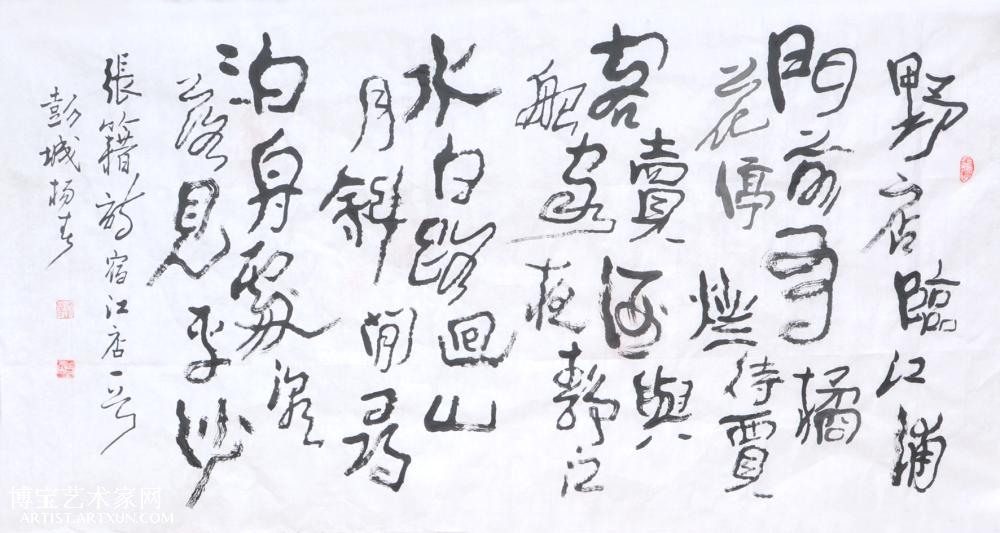 野店臨江浦
門前有橘
花停待賈
客賣酒與
船家夜靜江
水白路回山
月斜閒尋
泊舟處潮
落見平沙
張籍詩宿江店一首
彭城楊
博宝艺术家网
ARTIST.ARTXUN.COM